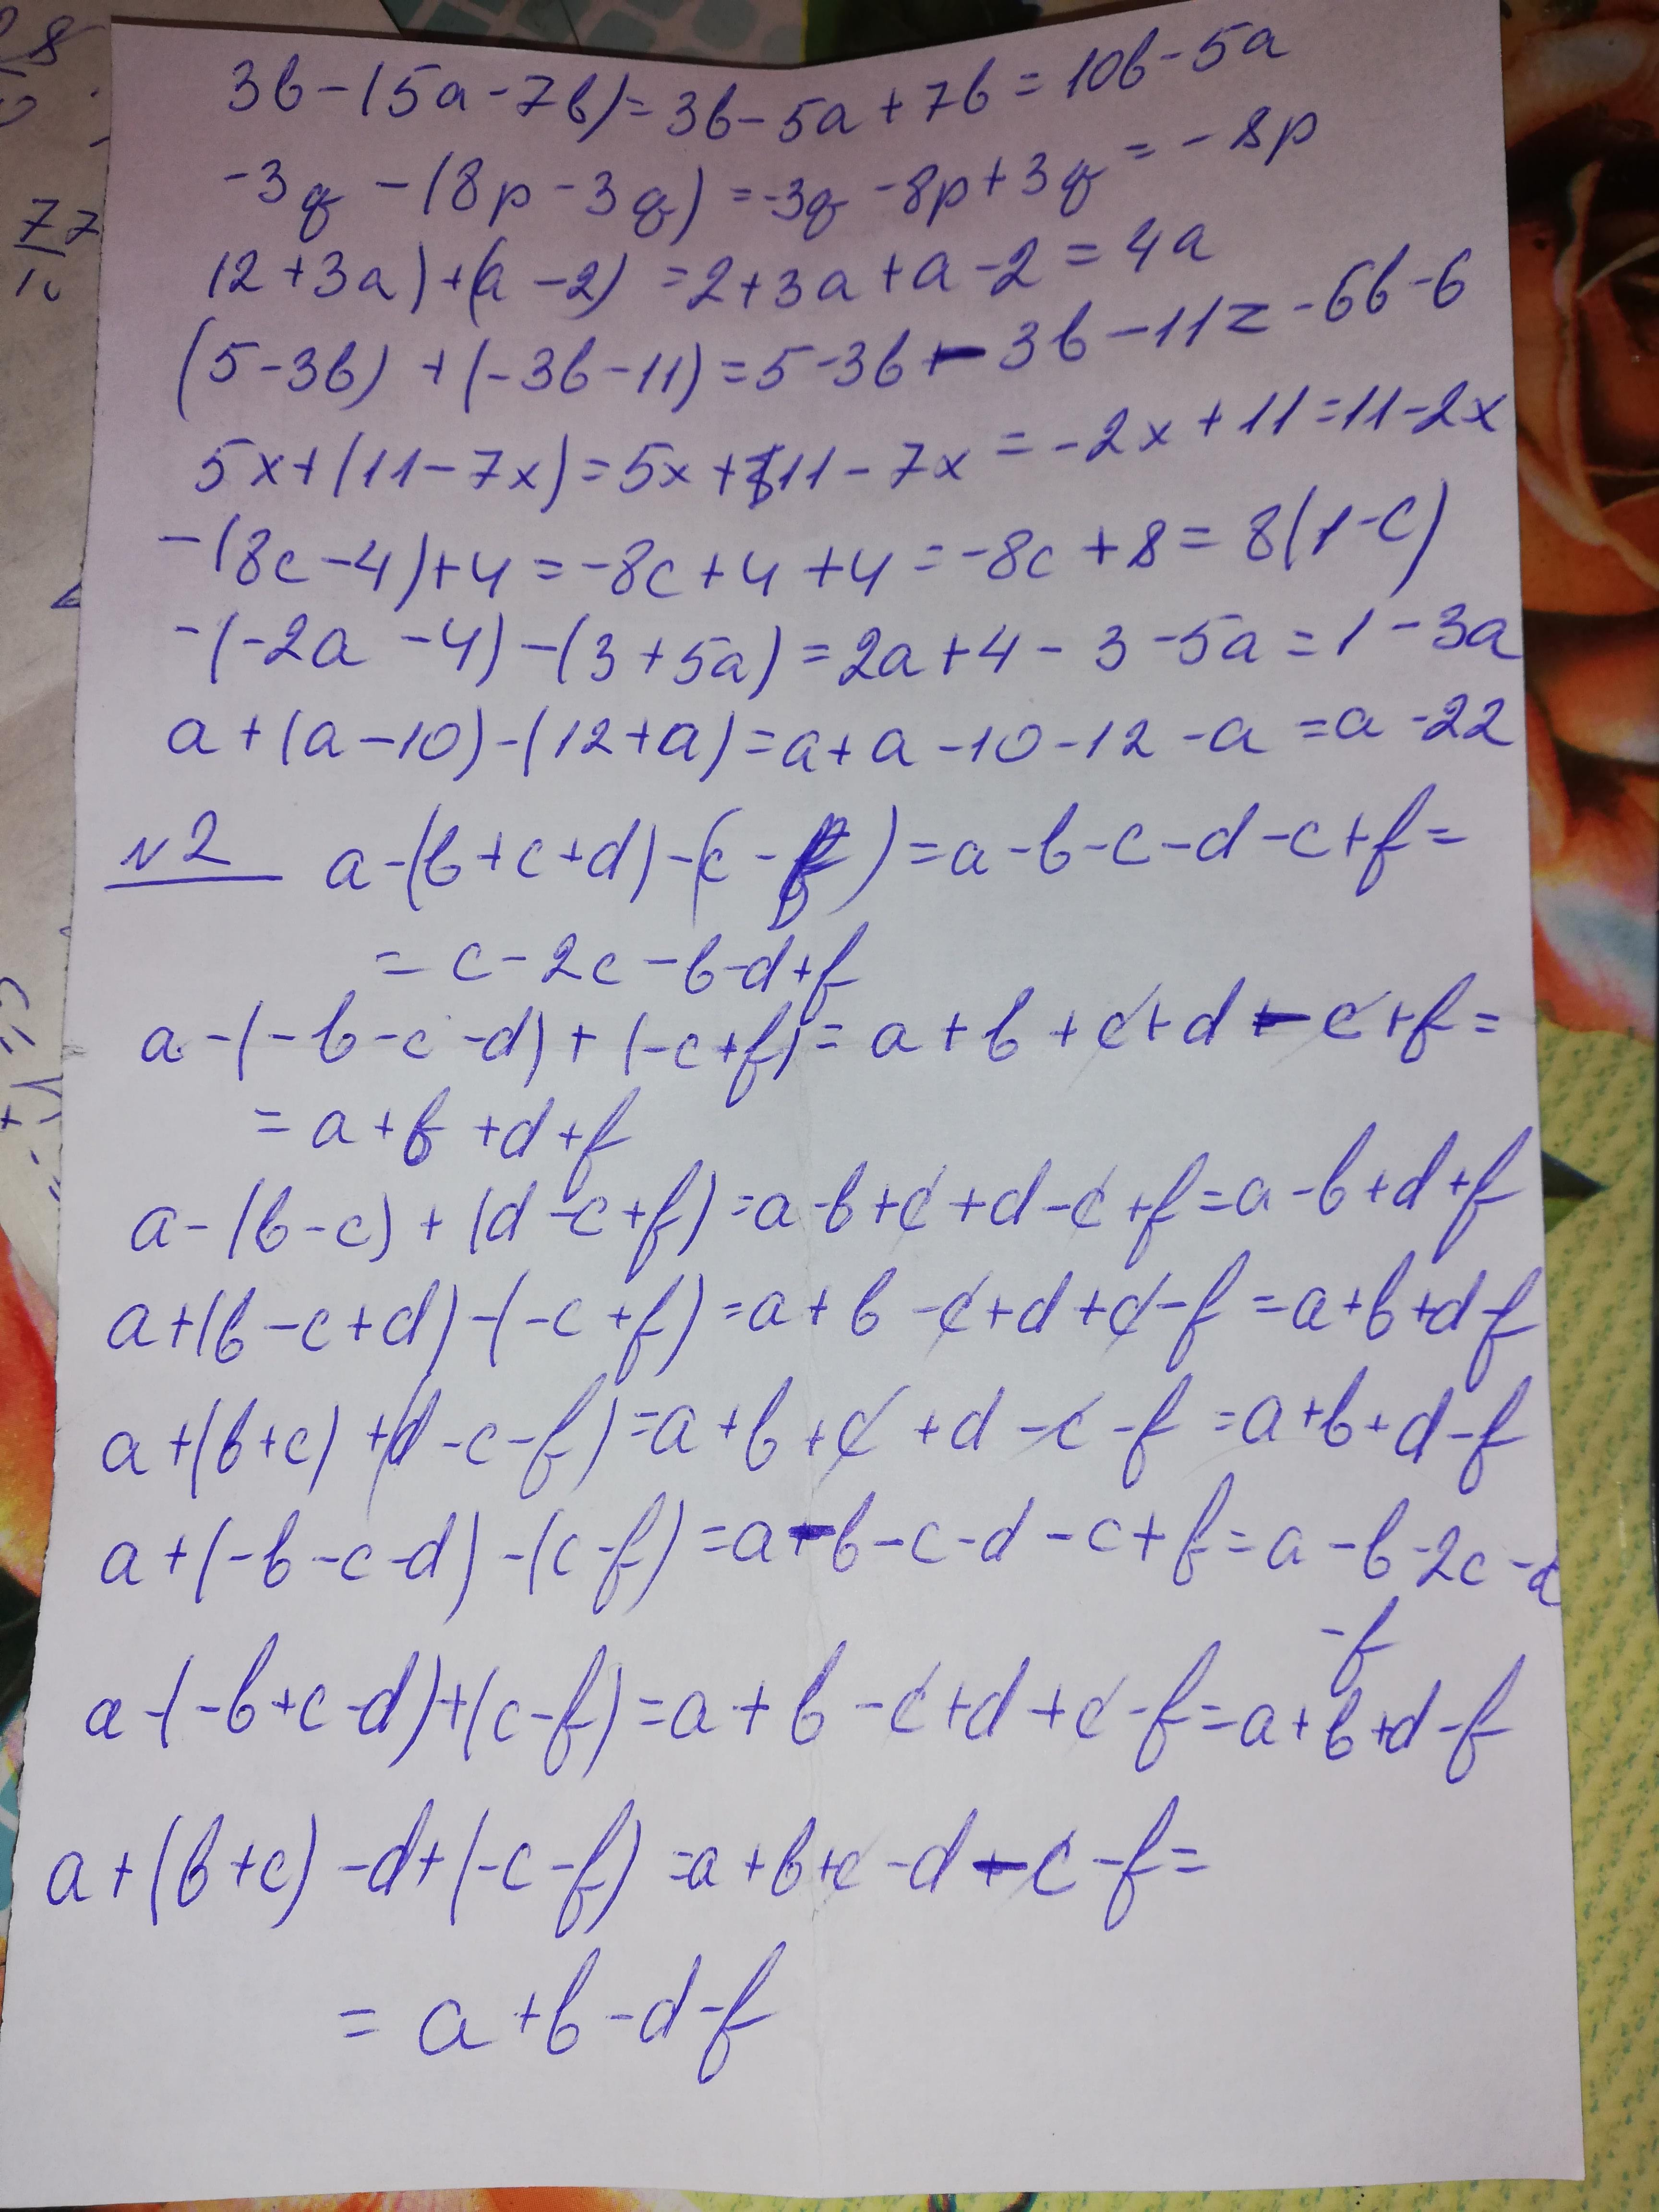 28
77
3b-(5a-7b)=3b-5a+7b=10b-5a
-3q-(8p-3q)=-3q-8p+3q=-8p
(2+3a)+(a-2)=2+3a+a-2=4a
(5-3b)+(-3b-11)=5-3b-3b-11=-6b-6
5x+(11-7x)=5x+11-7x=-2x+11=11-2x
-(8c-4)+4=-8c+4+4=-8c+8=8(1-c)
-(-2a-4)-(3+5a)=2a+4-3-5a=1-3a
a+(a-10)-(12+a)=a+a-10-12-a=a-22
N2 a-(b+c+d)-(c-f)=a-b-c-d-c+f=
=c-2c-b-d+f
a-(-b-c-d)+(-c+f)=a+b+c+d-c+f=
=a+b+d+f
a-(b-c)+(d-c+f)=a-b+c+d-c+f=a-b+d+f
a+(b-c+d)-(-c+f)=a+b-c+d+c-f=a+b+d-f
a+(b+c)+(d-c-f)=a+b+c+d-c-f=a+b+d-f
a+(-b-c-d)-(c-f)=a-b-c-d-c+f=a-b-2c-d
-f
a-(-b+c-d)+(c-f)=a+b-c+d+c-f=a+b+d-f
a+(b+c)-d+(-c-f)=a+b+c-d-c-f=
=a+b-d-f